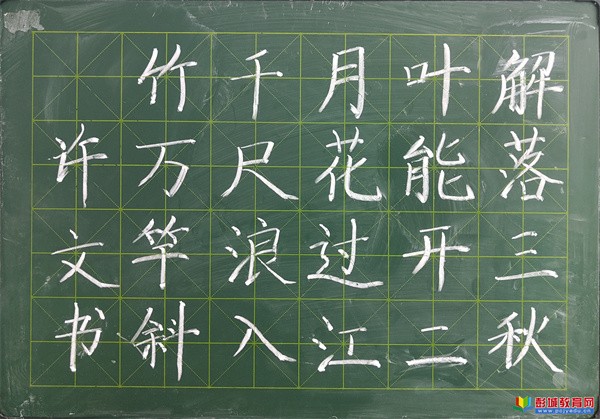 解落三秋
叶能开二
月花过江
千尺浪入
竹万竿斜
许文书
彭城教育网
www.pcjyedu.cn